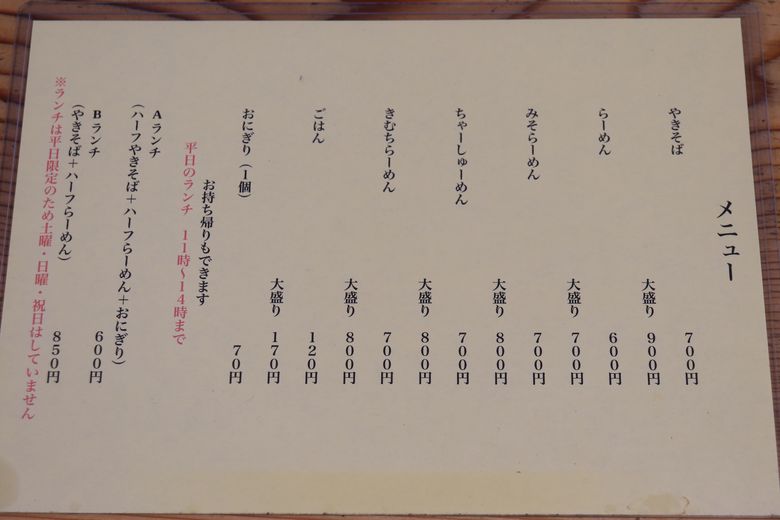 メニュー
やきそば 700円
大盛り 900円
らーめん 600円
大盛り 700円
みそらーめん 700円
大盛り 800円
ちゃーしゅーめん 700円
大盛り 800円
きむちらーめん 700円
大盛り 800円
ごはん 120円
大盛り 170円
おにぎり(1個) 70円
お持ち帰りもできます
平日のランチ 11時~14時まで
Aランチ
(ハーフやきそば+ハーフらーめん+おにぎり)
600円
Bランチ
(やきそば+ハーフらーめん)
850円
※ランチは平日限定のため土曜・日曜・祝日はしていません